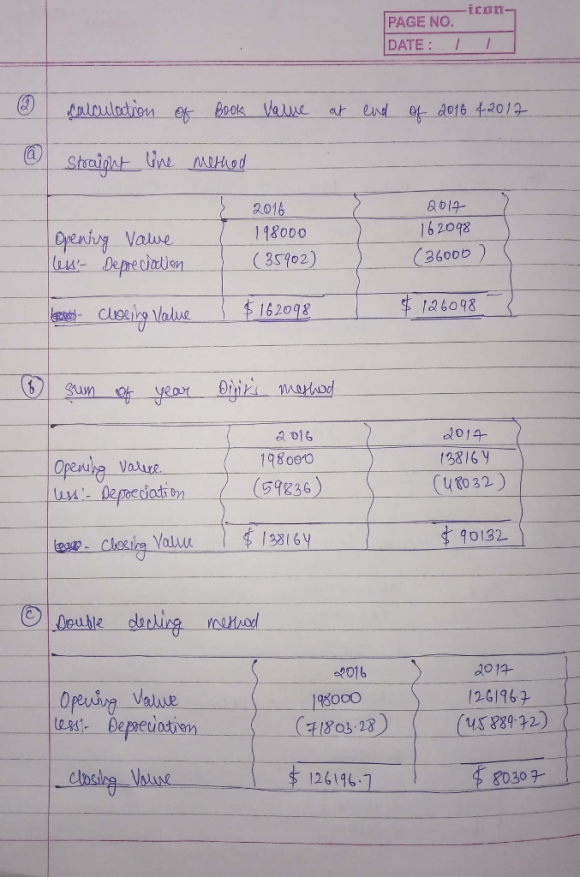 icon
PAGE NO.
DATE : / /
② Calculation of Book Value at end of 2016 & 2017
ⓐ Straight line method
2016 2017
Opening Value 198000 162098
less:- Depreciation (35902) (36000)
- Closing Value $ 162098 $ 126098
ⓑ Sum of year Digit's method
2016 2017
Opening Value. 198000 138164
less:- Depreciation (59836) (48032)
- Closing Value $ 138164 $ 90132
ⓒ Double decling method
2016 2017
Opening Value 198000 1261967
less:- Depreciation (71803.28) (45889.72)
Closing Value $ 126196.7 $ 80307